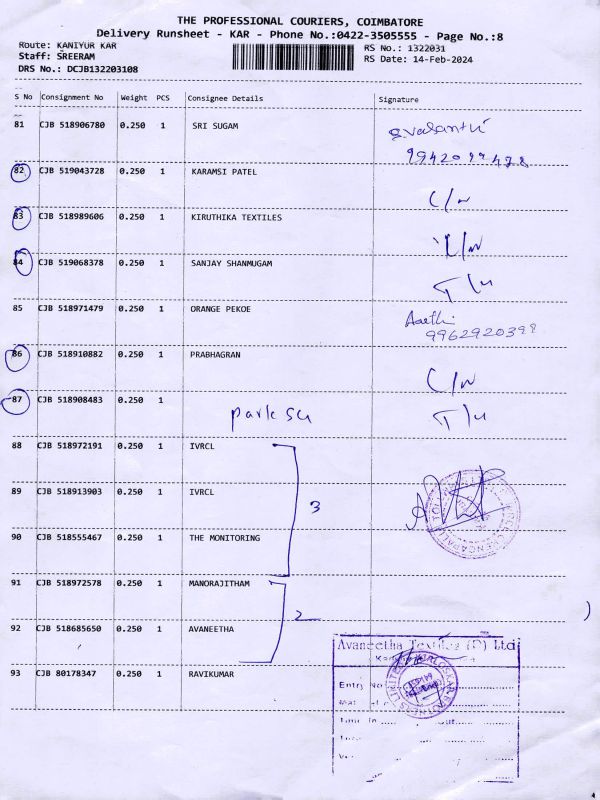 THE PROFESSIONAL COURIERS, COIMBATORE
Delivery Runsheet - KAR - Phone No.:0422-3505555 - Page No.:8
Route: KANIYUR KAR
RS No.: 1322031
Staff: SREERAM
RS Date: 14-Feb-2024
DRS No.: DCJB132203108
S No Consignment No Weight PCS Consignee Details Signature
81 CJB 518906780 0.250 1 SRI SUGAM
S.Vasanthi
82 CJB 519043728 0.250 1 KARAMSI PATEL
83 CJB 518989606 0.250 1 KIRUTHIKA TEXTILES
84 CJB 519068378 0.250 1 SANJAY SHANMUGAM
85 CJB 518971479 0.250 1 ORANGE PEKOE Aarthi
9962920399
86 CJB 518910882 0.250 1 PRABHAGRAN
87 CJB 518908483 0.250 1
88 CJB 518972191 0.250 1 IVRCL
89 CJB 518913903 0.250 1 IVRCL
3
90 CJB 518555467 0.250 1 THE MONITORING
91 CJB 518972578 0.250 1 MANORAJITHAM
2
92 CJB 518685650 0.250 1 AVANEETHA
Avaneetha Textiles (P) Ltd
93 CJB 80178347 0.250 1 RAVIKUMAR
Entry No